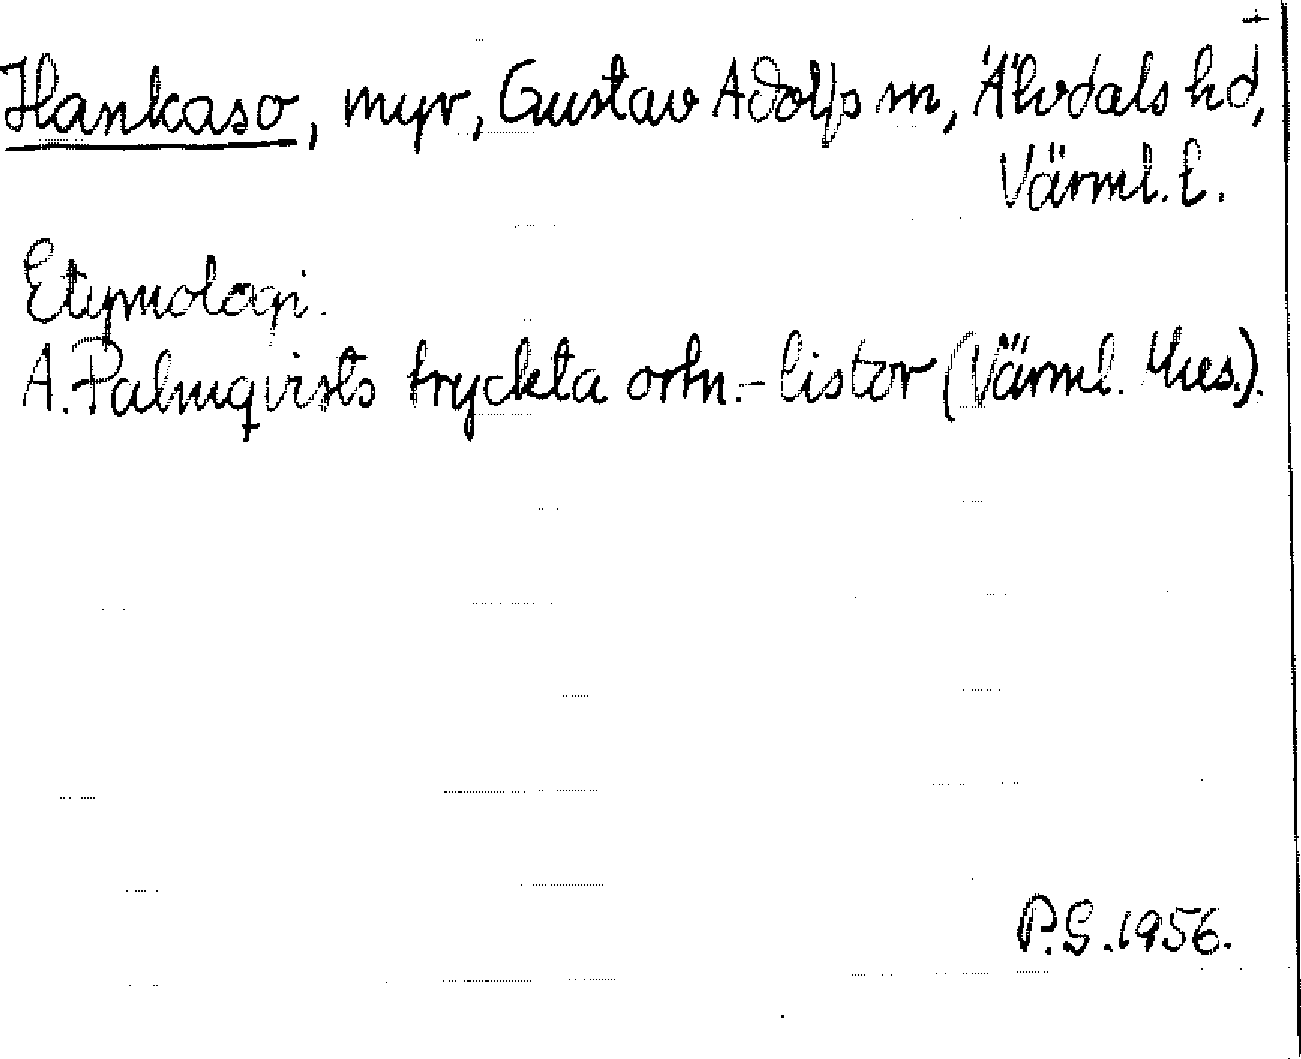 +
Hankaso, myr, Gustav Adolfs sn, Älvdals hd,
Värml. l.
Etymologi.
A. Palmqvists tryckta ortn.-listor (Värml. Mus.).
P.G. 1956.